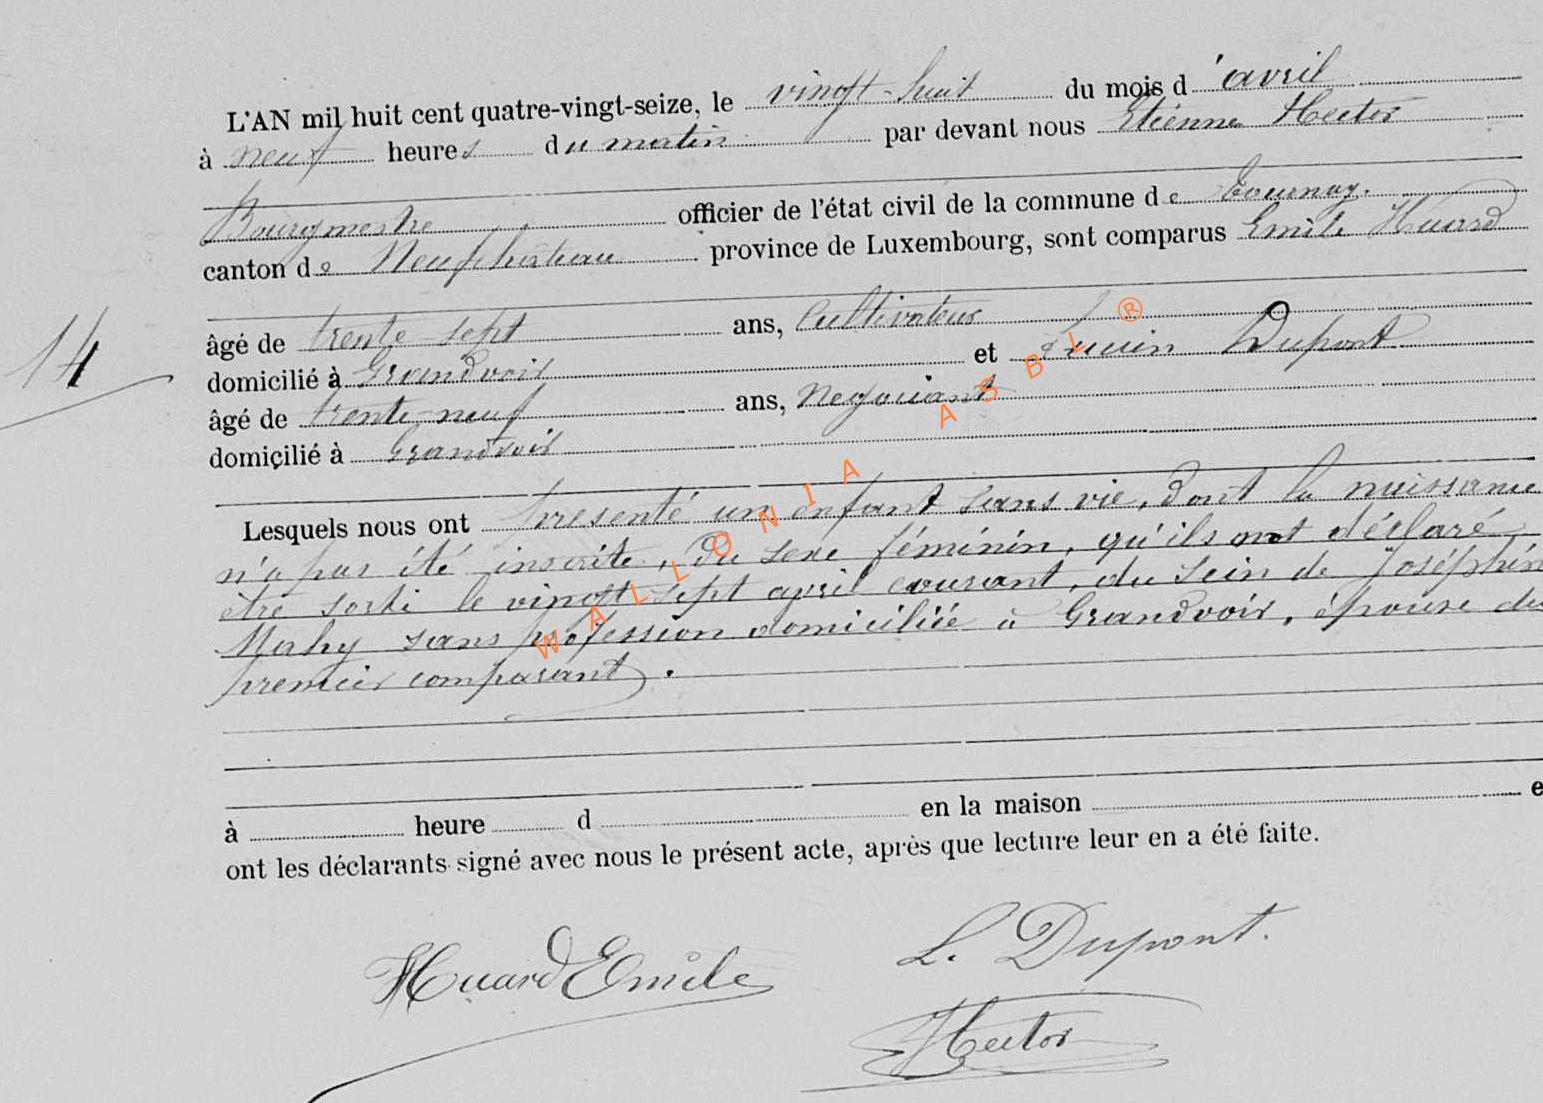 L'AN mil huit cent quatre-vingt-seize, le vingt-huit du mois d'avril
à neuf heures du matin par devant nous Etienne Hector
Bourgmestre officier de l'état civil de la commune de Tournay.
canton de Neufchâteau province de Luxembourg, sont comparus Emile Huard
âgé de trente-sept ans, Cultivateur
domicilié à Grandvoir et Lucien Dupont
14
âgé de trente-neuf ans, Negociant
domicilié à Grandvoir
Lesquels nous ont présenté un enfant sans vie, dont la naissance
n'a pas été inscrite, du sexe féminin, qu'ils ont déclaré
être sorti le vingt-sept avril courant, du sein de Joséphin
Mahy sans profession domiciliée à Grandvoir, épouse du
premier comparant.
à heure d en la maison e
ont les déclarants signé avec nous le présent acte, après que lecture leur en a été faite.
Huard Emile L. Dupont.
Hector
WALLONIA ASBL ®